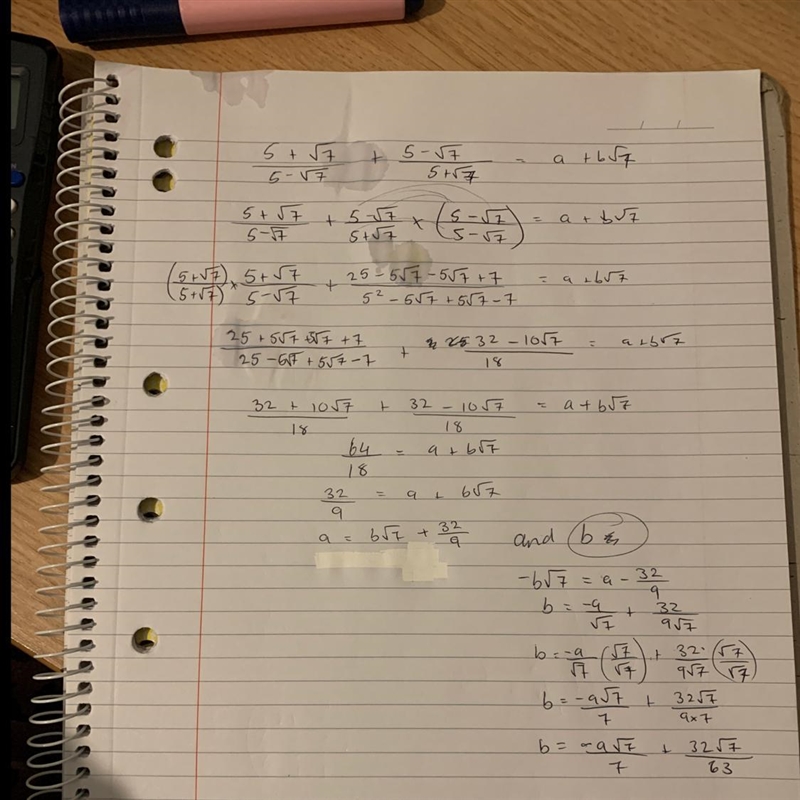 (5 + √7)/(5 - √7) + (5 - √7)/(5 + √7) = a + b√7
(5 + √7)/(5 - √7) + (5 - √7)/(5 + √7) × ((5 - √7)/(5 - √7)) = a + b√7
((5 + √7)/(5 + √7)) × (5 + √7)/(5 - √7) + (25 - 5√7 - 5√7 + 7)/(5² - 5√7 + 5√7 - 7) = a + b√7
(25 + 5√7 + 5√7 + 7)/(25 - 5√7 + 5√7 - 7) + (32 - 10√7)/18 = a + b√7
(32 + 10√7)/18 + (32 - 10√7)/18 = a + b√7
64/18 = a + b√7
32/9 = a + b√7
a = b√7 + 32/9 and b
-b√7 = a - 32/9
b = -a/√7 + 32/(9√7)
b = -a/√7 (√7/√7) + 32/(9√7) (√7/√7)
b = -a√7/7 + 32√7/(9×7)
b = -a√7/7 + 32√7/63